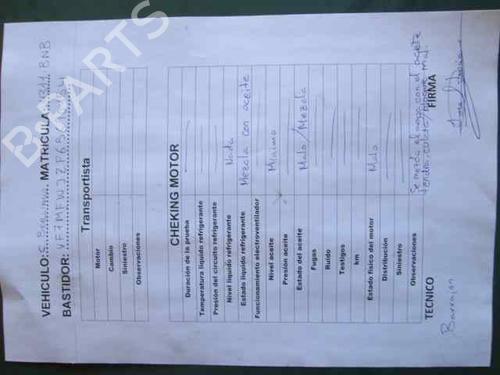 VEHICULO: MATRICULA 1311 BNB
BASTIDOR: VF7MFWJZF65
Transportista
Motor
Cambio
Siniestro
Observaciones
CHEKING MOTOR
Duración de la prueba
Temperatura liquido refrigerante
Presión del circuito refrigerante
Nivel liquido refrigerante Nada
Estado liquido refrigerante Mezcla con aceite
Funcionamiento electroventilador
Nivel aceite Minimo
Presión aceite
Estado del aceite Malo/Mezcla
Fugas
Ruido
Testigos
km
Estado fisico del motor Malo
Distribución
Siniestro
Observaciones Se mezcla el agua con el aceite
culata
TECNICO FIRMA
Barrajon
B-PARTS